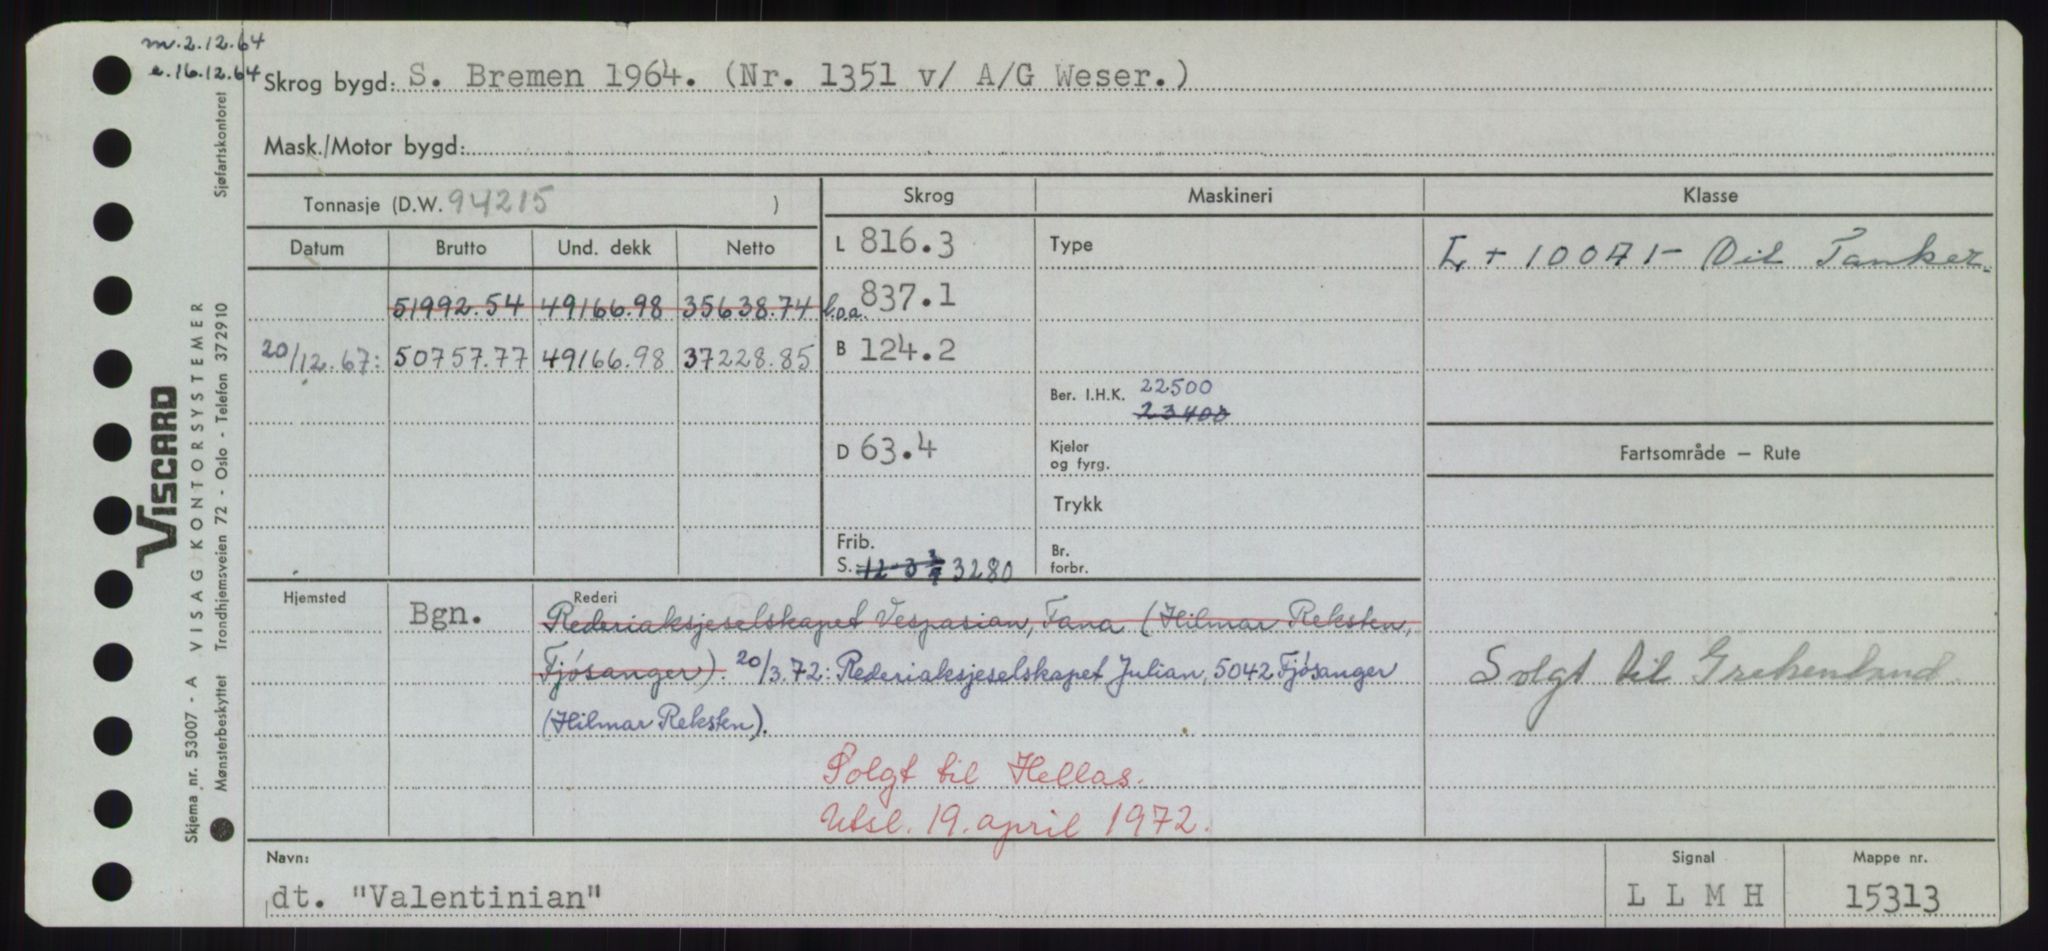 m. 2.12.64
e. 16.12.64
Skrog bygd: S. Bremen 1964. (Nr. 1351 v/ A/G Weser.)
Mask./Motor bygd:
Tonnasje (D.W. 94215 )
Skrog
Maskineri
Klasse
Datum
Brutto
Und. dekk
Netto
L 816.3
Type
51992.54 49166.98 35638.74
l.o.a. 837.1
20/12.67: 50757.77 49166.98 37228.85
B 124.2
Ber. I.H.K. 22500
23400
D 63.4
Kjeler
og fyrg.
Fartsområde — Rute
Trykk
Frib.
S. 3280
Br.
forbr.
Hjemsted
Bgn.
Rederi
Rederiaksjeselskapet Vespasian, Fana (Hilmar Reksten,
Fjøsanger). 20/3.72: Rederiaksjeselskapet Julian, 5042 Fjøsanger
(Hilmar Reksten).
Solgt til Grekenland
Solgt til Hellas.
Utsl. 19. april 1972.
Navn:
dt. "Valentinian"
Signal
L L M H
Mappe nr.
15313
VISCARD
VISAG KONTORSYSTEMER
Sjøfartskontoret
Trondhjemsveien 72 - Oslo - Telefon 372910
Skjema nr. 53007 - A
Mønsterbeskyttet